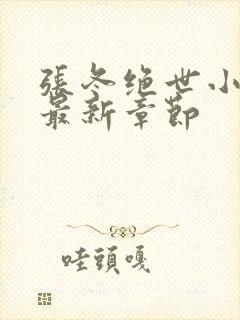 張冬绝世小
最新章節
哇頭嘎